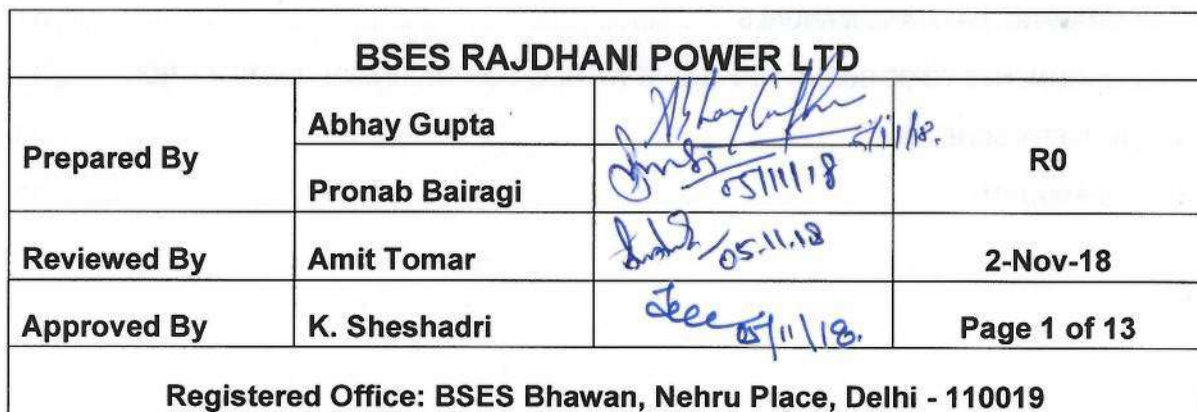 BSES RAJDHANI POWER LTD
Prepared By
Abhay Gupta
Abhay Gupta
5/11/18.
R0
Pronab Bairagi
05/11/18
Reviewed By
Amit Tomar
05.11.18
2-Nov-18
Approved By
K. Sheshadri
05/11/18.
Page 1 of 13
Registered Office: BSES Bhawan, Nehru Place, Delhi - 110019